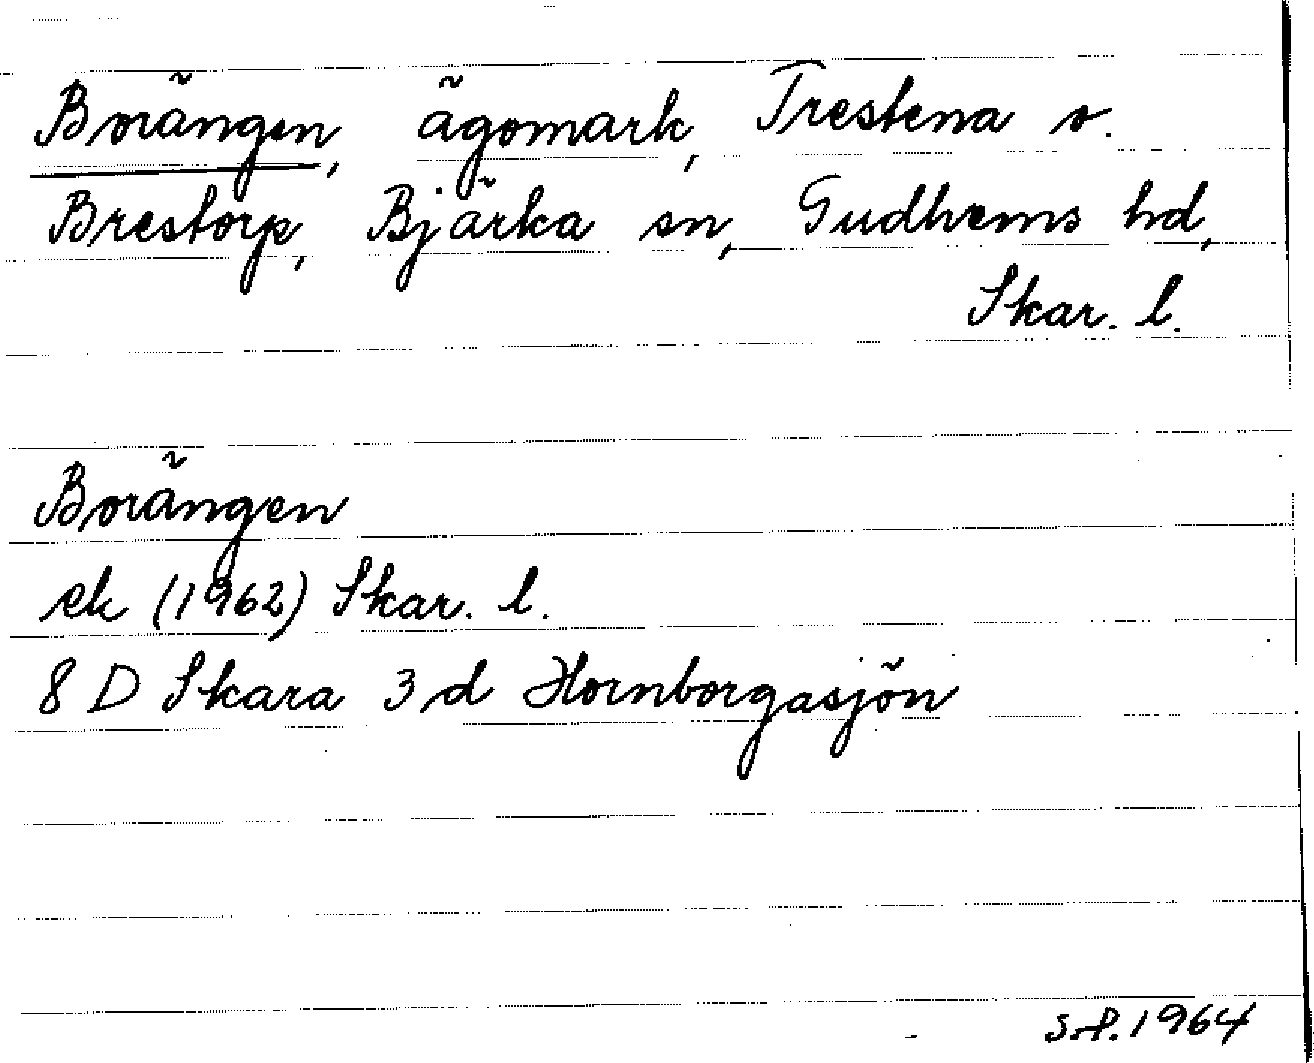 Borängen, ägomark, Trestena o.
Brestorp, Bjärka sn, Gudhems hd,
Skar. l.
Borängen
ek (1962) Skar. l.
8 D Skara 3 d Hornborgasjön
S.P. 1964